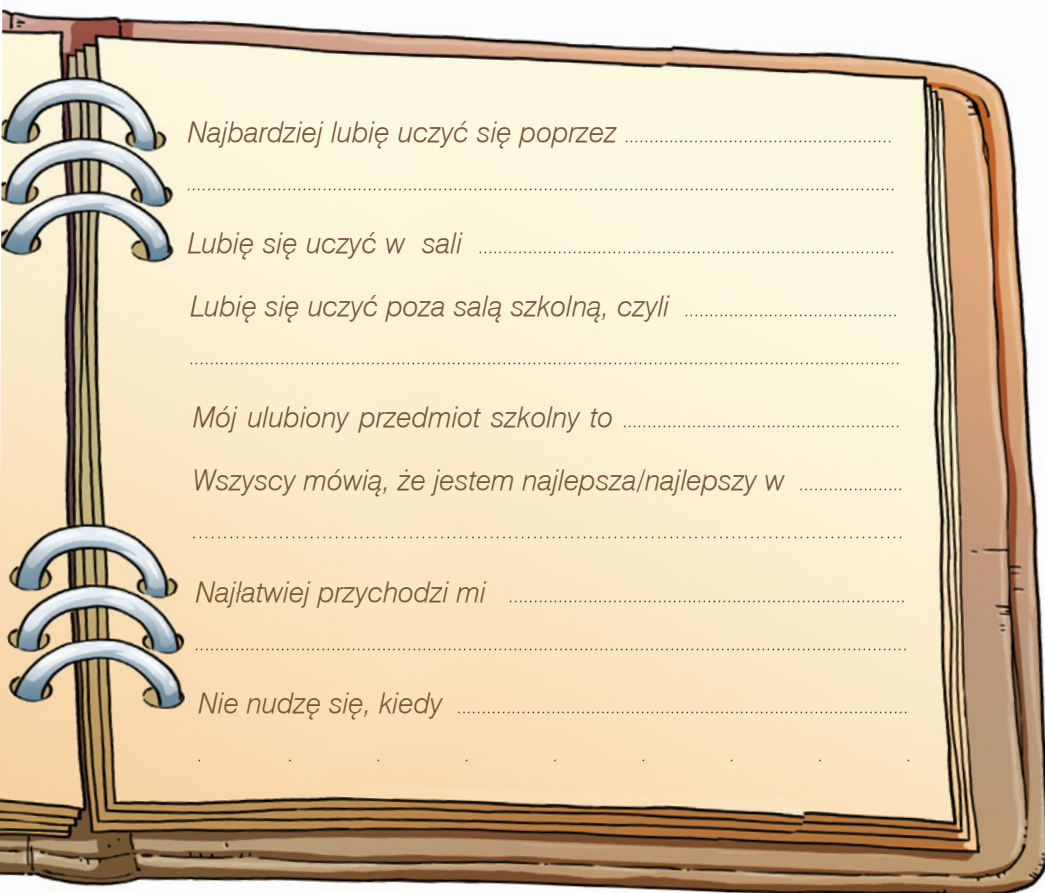 Najbardziej lubię uczyć się poprzez ......................................................
................................................................................................................
Lubię się uczyć w  sali ......................................................
Lubię się uczyć poza salą szkolną, czyli ......................................................
................................................................................................................
Mój ulubiony przedmiot szkolny to ......................................................
Wszyscy mówią, że jestem najlepsza/najlepszy w .....................
................................................................................................................
Najłatwiej przychodzi mi ......................................................
................................................................................................................
Nie nudzę się, kiedy ......................................................
. . . . . . . . .